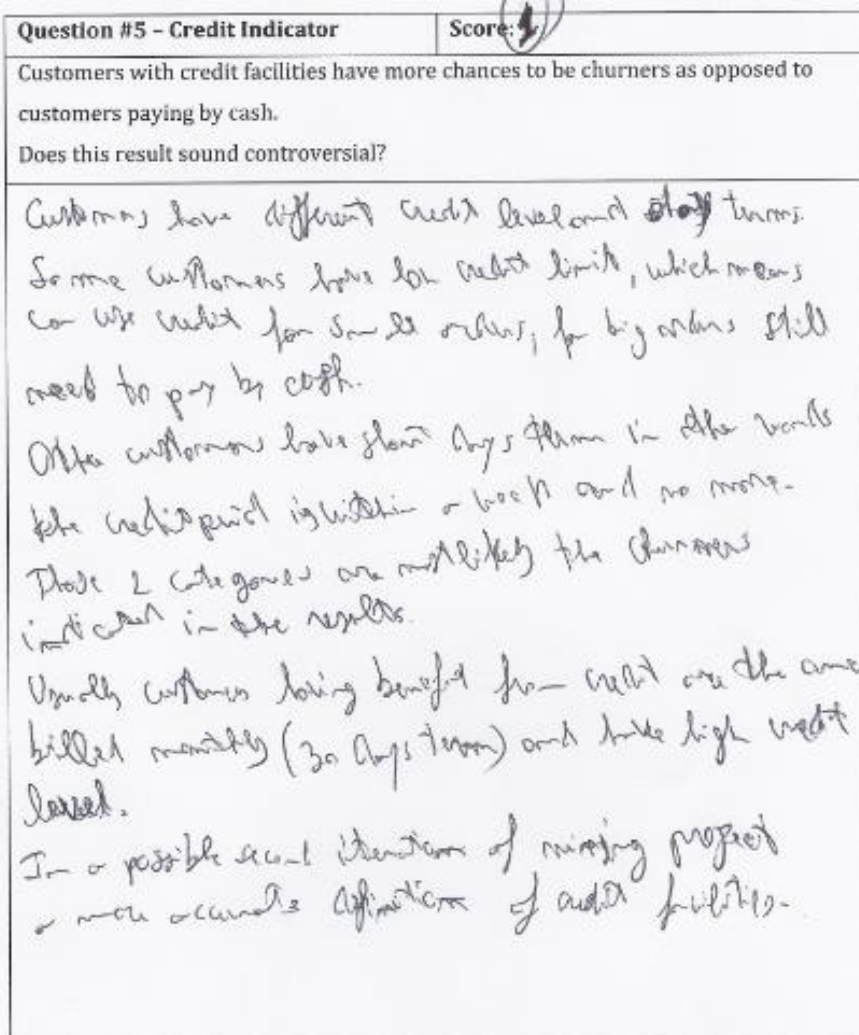 Question #5 – Credit Indicator Score: 1
Customers with credit facilities have more chances to be churners as opposed to
customers paying by cash.
Does this result sound controversial?
Customers have different credit level and days terms.
Some customers have low credit limit, which means
can use credit for small orders, for big orders still
need to pay by cash.
Other customers have short days term in other words
the credit period is within a week and no more.
Those 2 categories are most likely the churners
indicated in the results.
Usually customers having benefit from credit are the ones
billed monthly (30 days term) and have high credit
level.
In a possible second iteration of mining project
a more accurate definition of credit facilities.